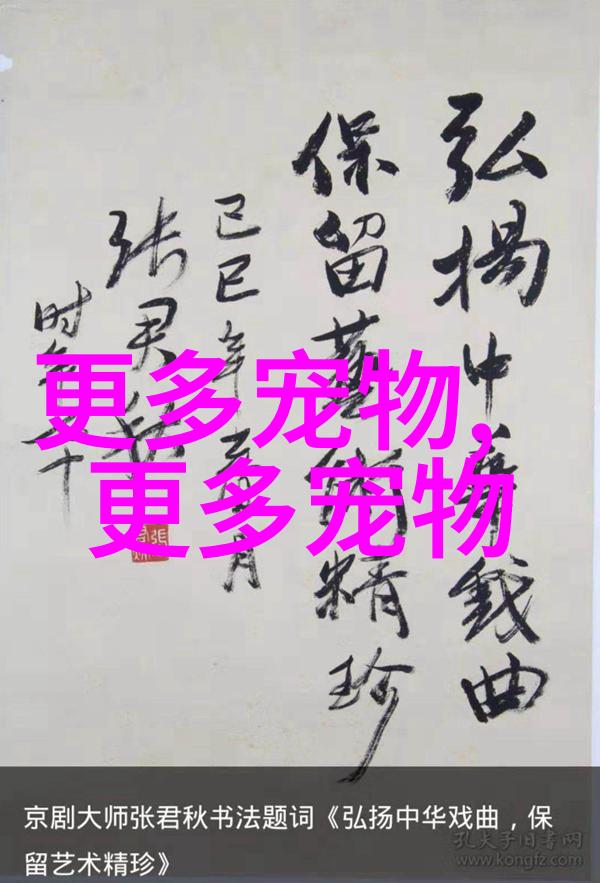 弘揚中華戲曲
保留藝術精珍
己巳年元月
张君秋
时年七十
更多宠物,
更多宠物
京剧大师张君秋书法题词《弘扬中华戏曲，保
留艺术精珍》
孔夫子旧书网
www.kongfz.com